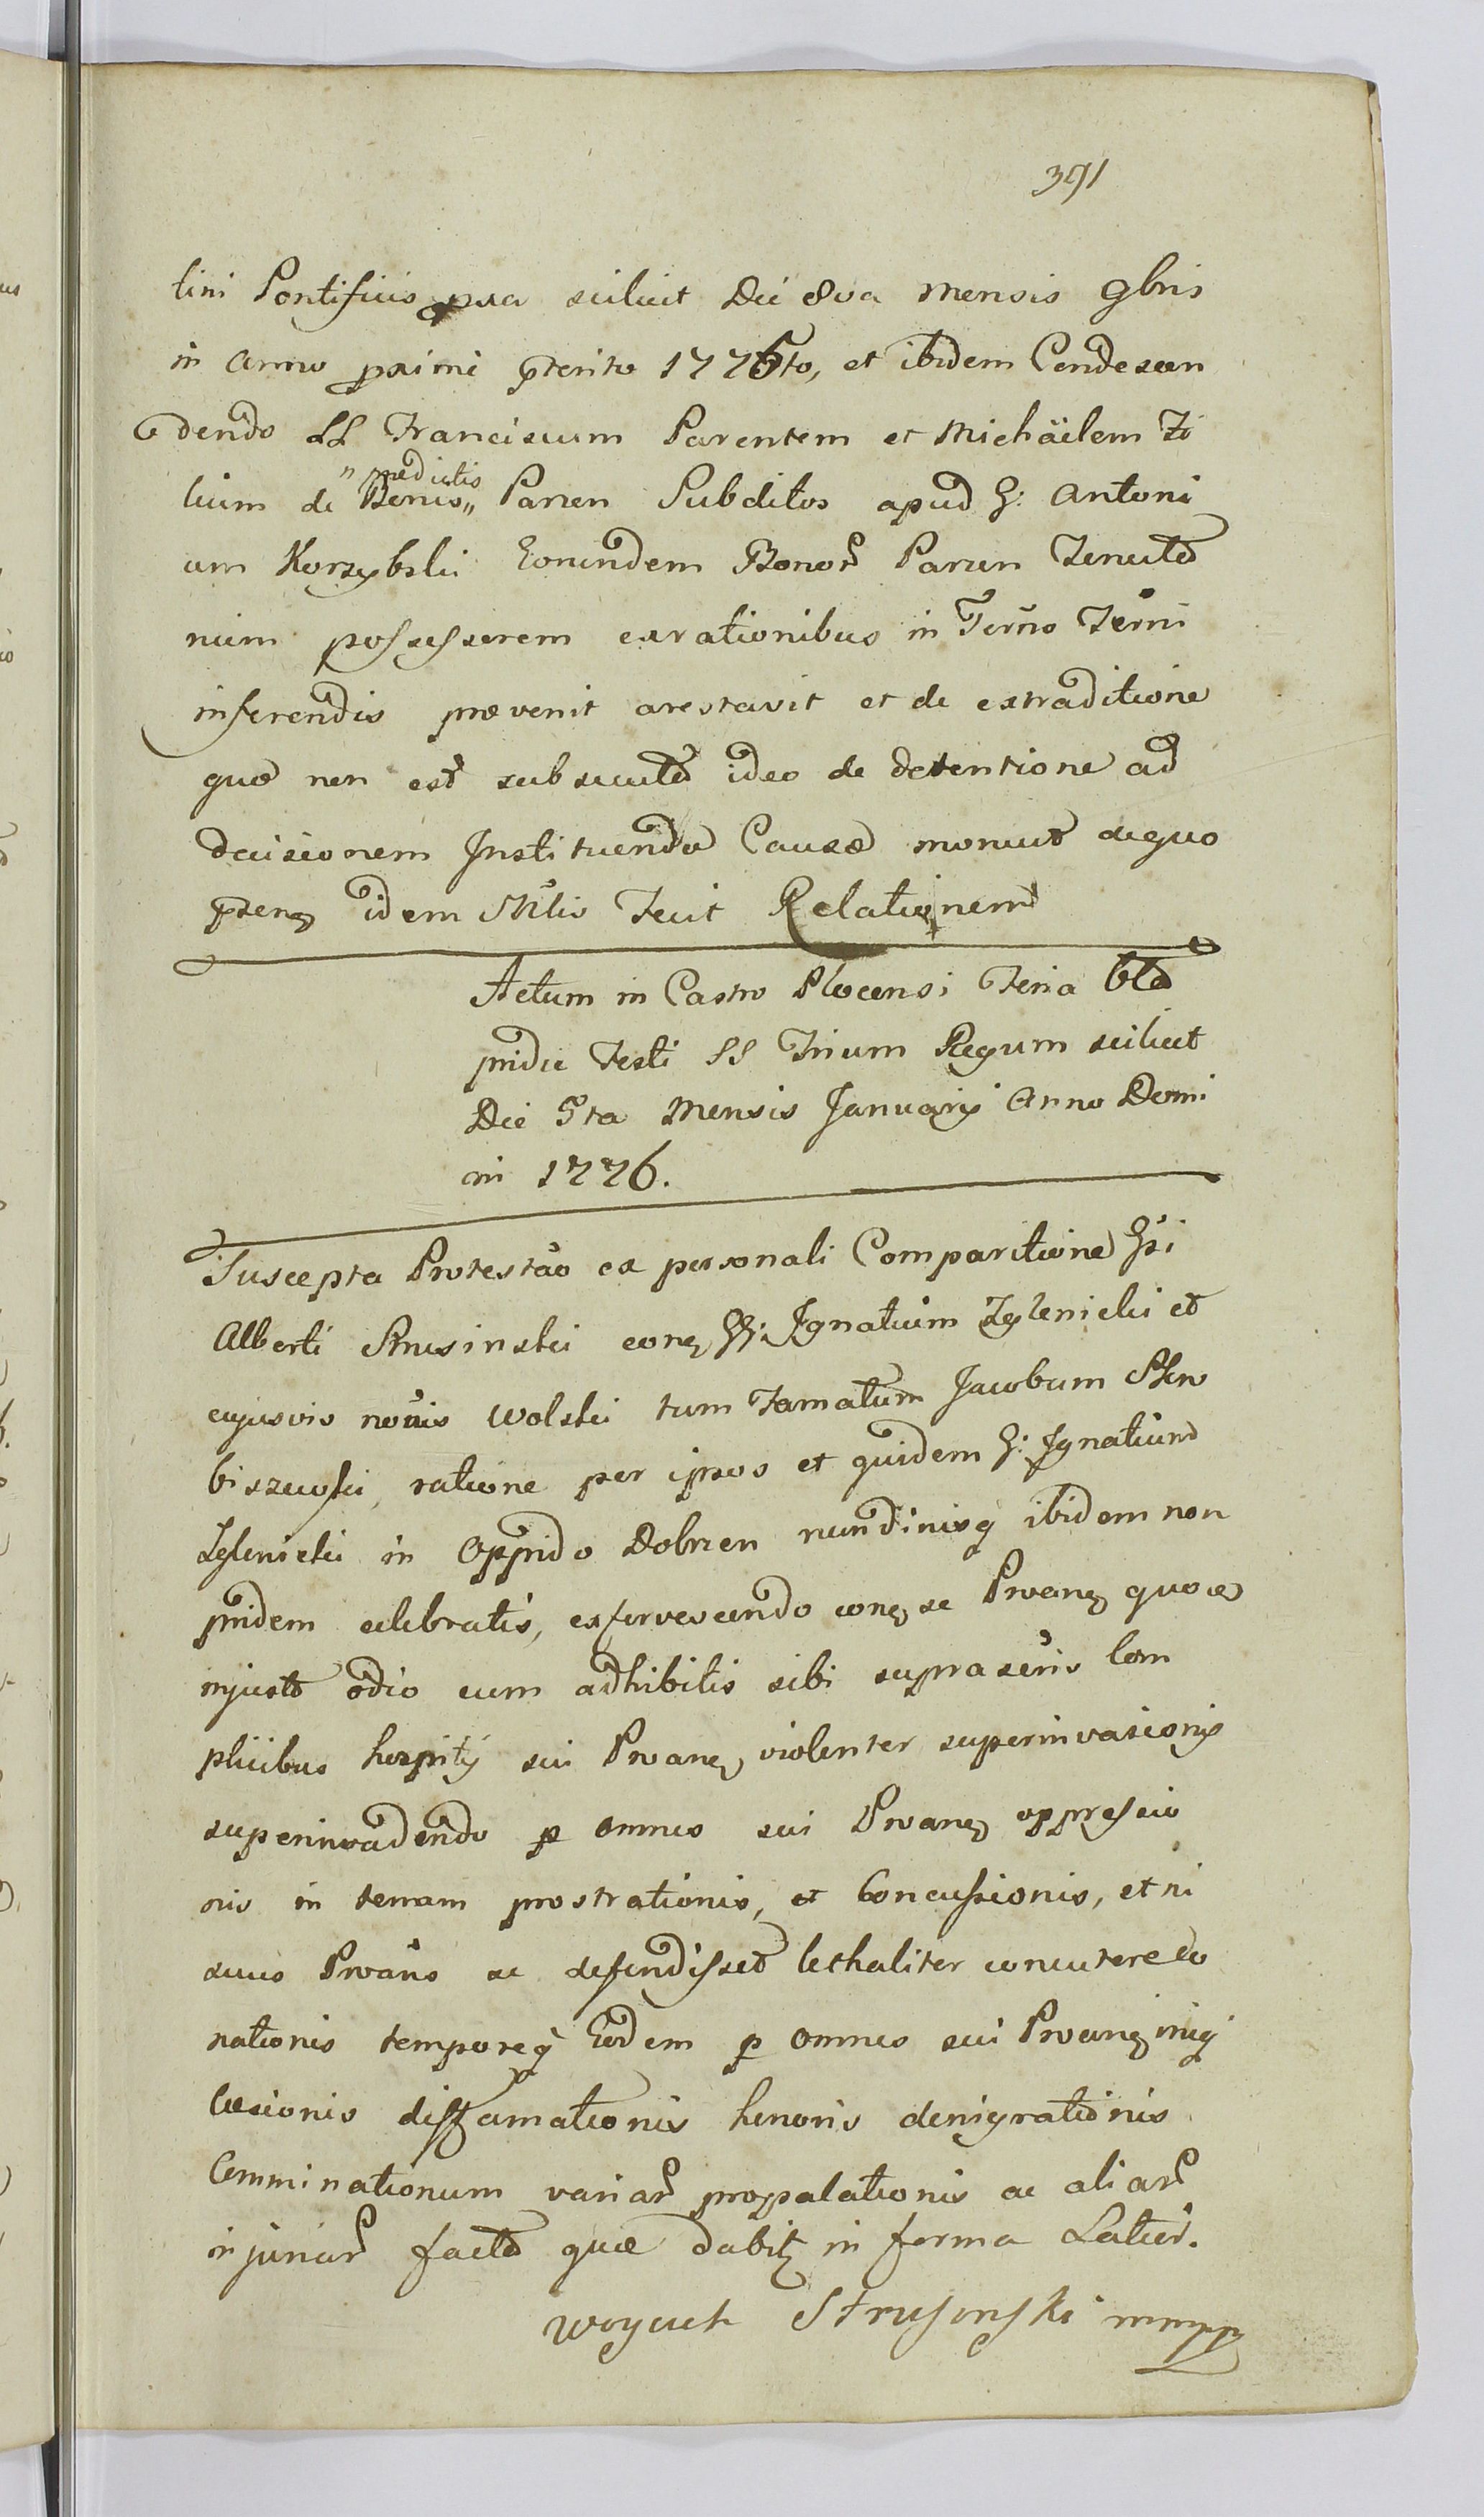 391
tini Pontificis pxa scilicet Die 8va Mensis 9bris
in Anno pximi pterito 1775to, et ibidem Condescen
dendo LL Franciscum Parentem et Michäelem Fi
lium de Bonis „prædictis„ Parzen Subditos apud G: Antoni
um Korzybski Eorundem Bonor Parzen Tenuta
rium possessorem exrationibus in Termo Termi
inferendis prævenit arestavit et de extraditione
quæ non est subsecuta ideo de detentione ad
decisionem Instituendæ Causæ monuit de quo
psens idem Mlis fecit Relationem
Actum in Castro Plocensi Feria 6ta
pridie Festi SS Trium Regum scilicet
Die 5ta Mensis Januarij Anno Domi
ni 1776.
Suscepta Protestão ex personali Comparitione Gsi
Alberti Strusinski conq GG: Ignatium Zglenicki et
cujusvis nõuis Wolski tum Famatum Jacobum Skro
biszewski, ratione per ipsos et quidem G: Ignatium
Zglenicki in Oppido Dobrzen nundinisq ibidem non
pridem celebratis, exfervescendo conq se Proanq quoce
injusto odio cum adhibitis sibi suprascris Com
plicibus hospitij sui Proanq violenter superinvasionis
superinvadendo p omnes sui Proanq oppressio
nis in terram prostrationis, et Concussionis, et ni
suus Proans se defendisset lethaliter concutere co
nationis temporeq Eodem p omnes sui Proanq iniq
læsionis diffamationis honoris denigrationis
Comminationum variar propalationis ac aliar
injuriar facta quæ dabitq in forma Latiori.
Woyciech Strusinski mmpp